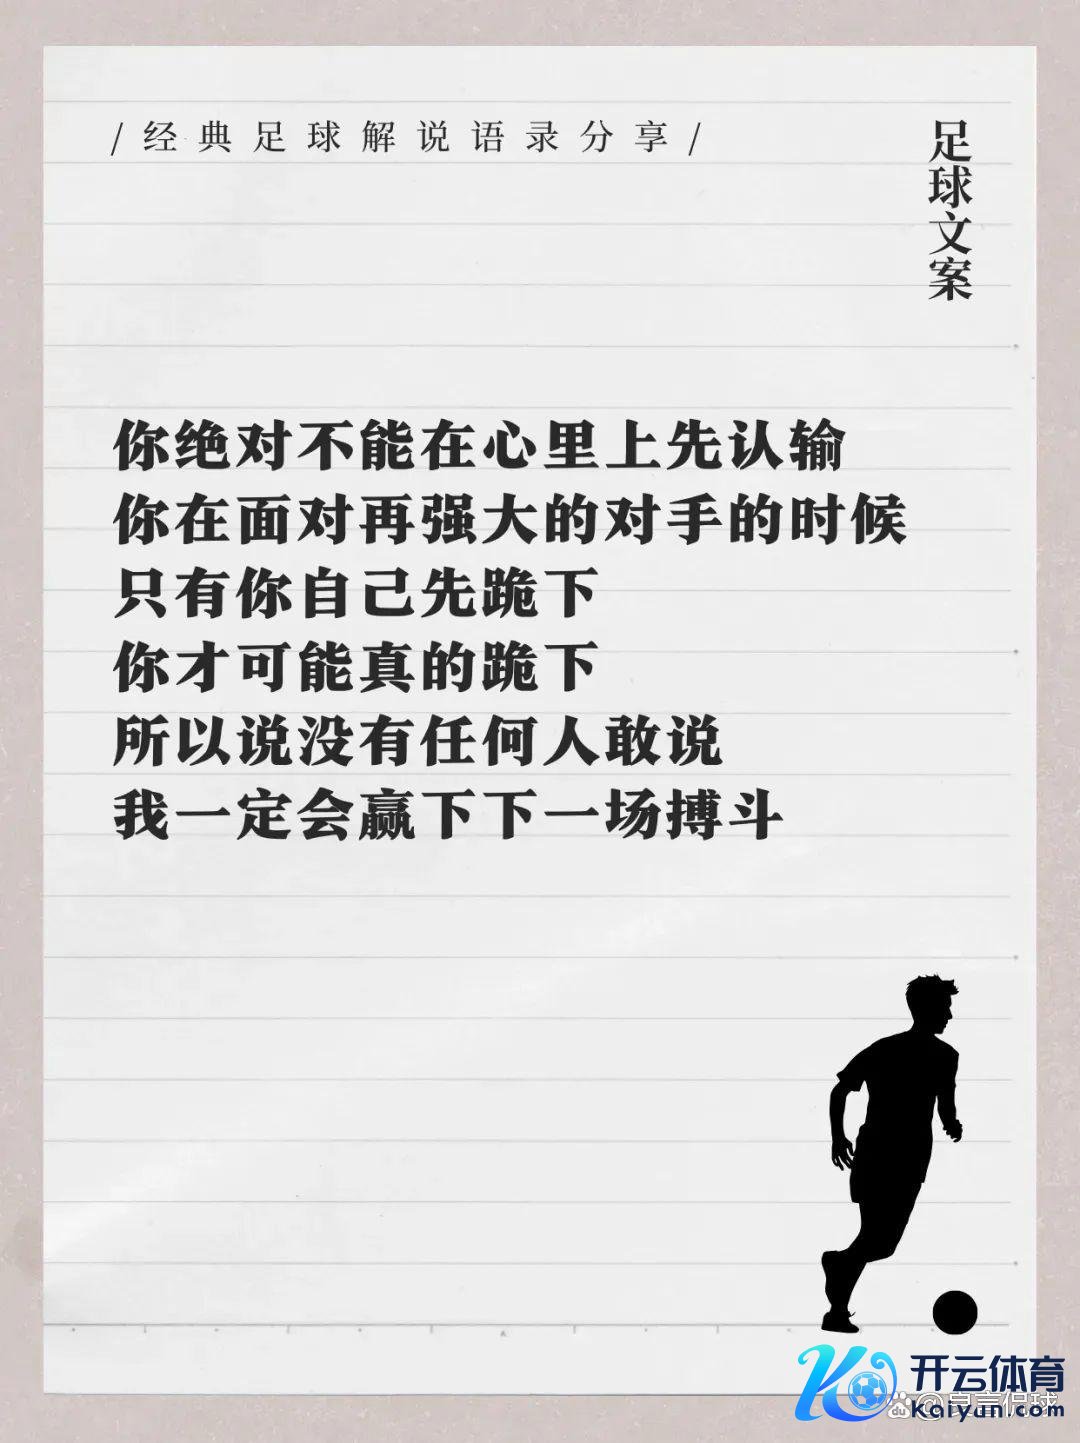 /经典足球解说语录分享/
足球文案
你绝对不能在心里上先认输
你在面对再强大的对手的时候
只有你自己先跪下
你才可能真的跪下
所以说没有任何人敢说
我一定会赢下下一场搏斗
开云体育
Kaiyun.com
du @良言侃球